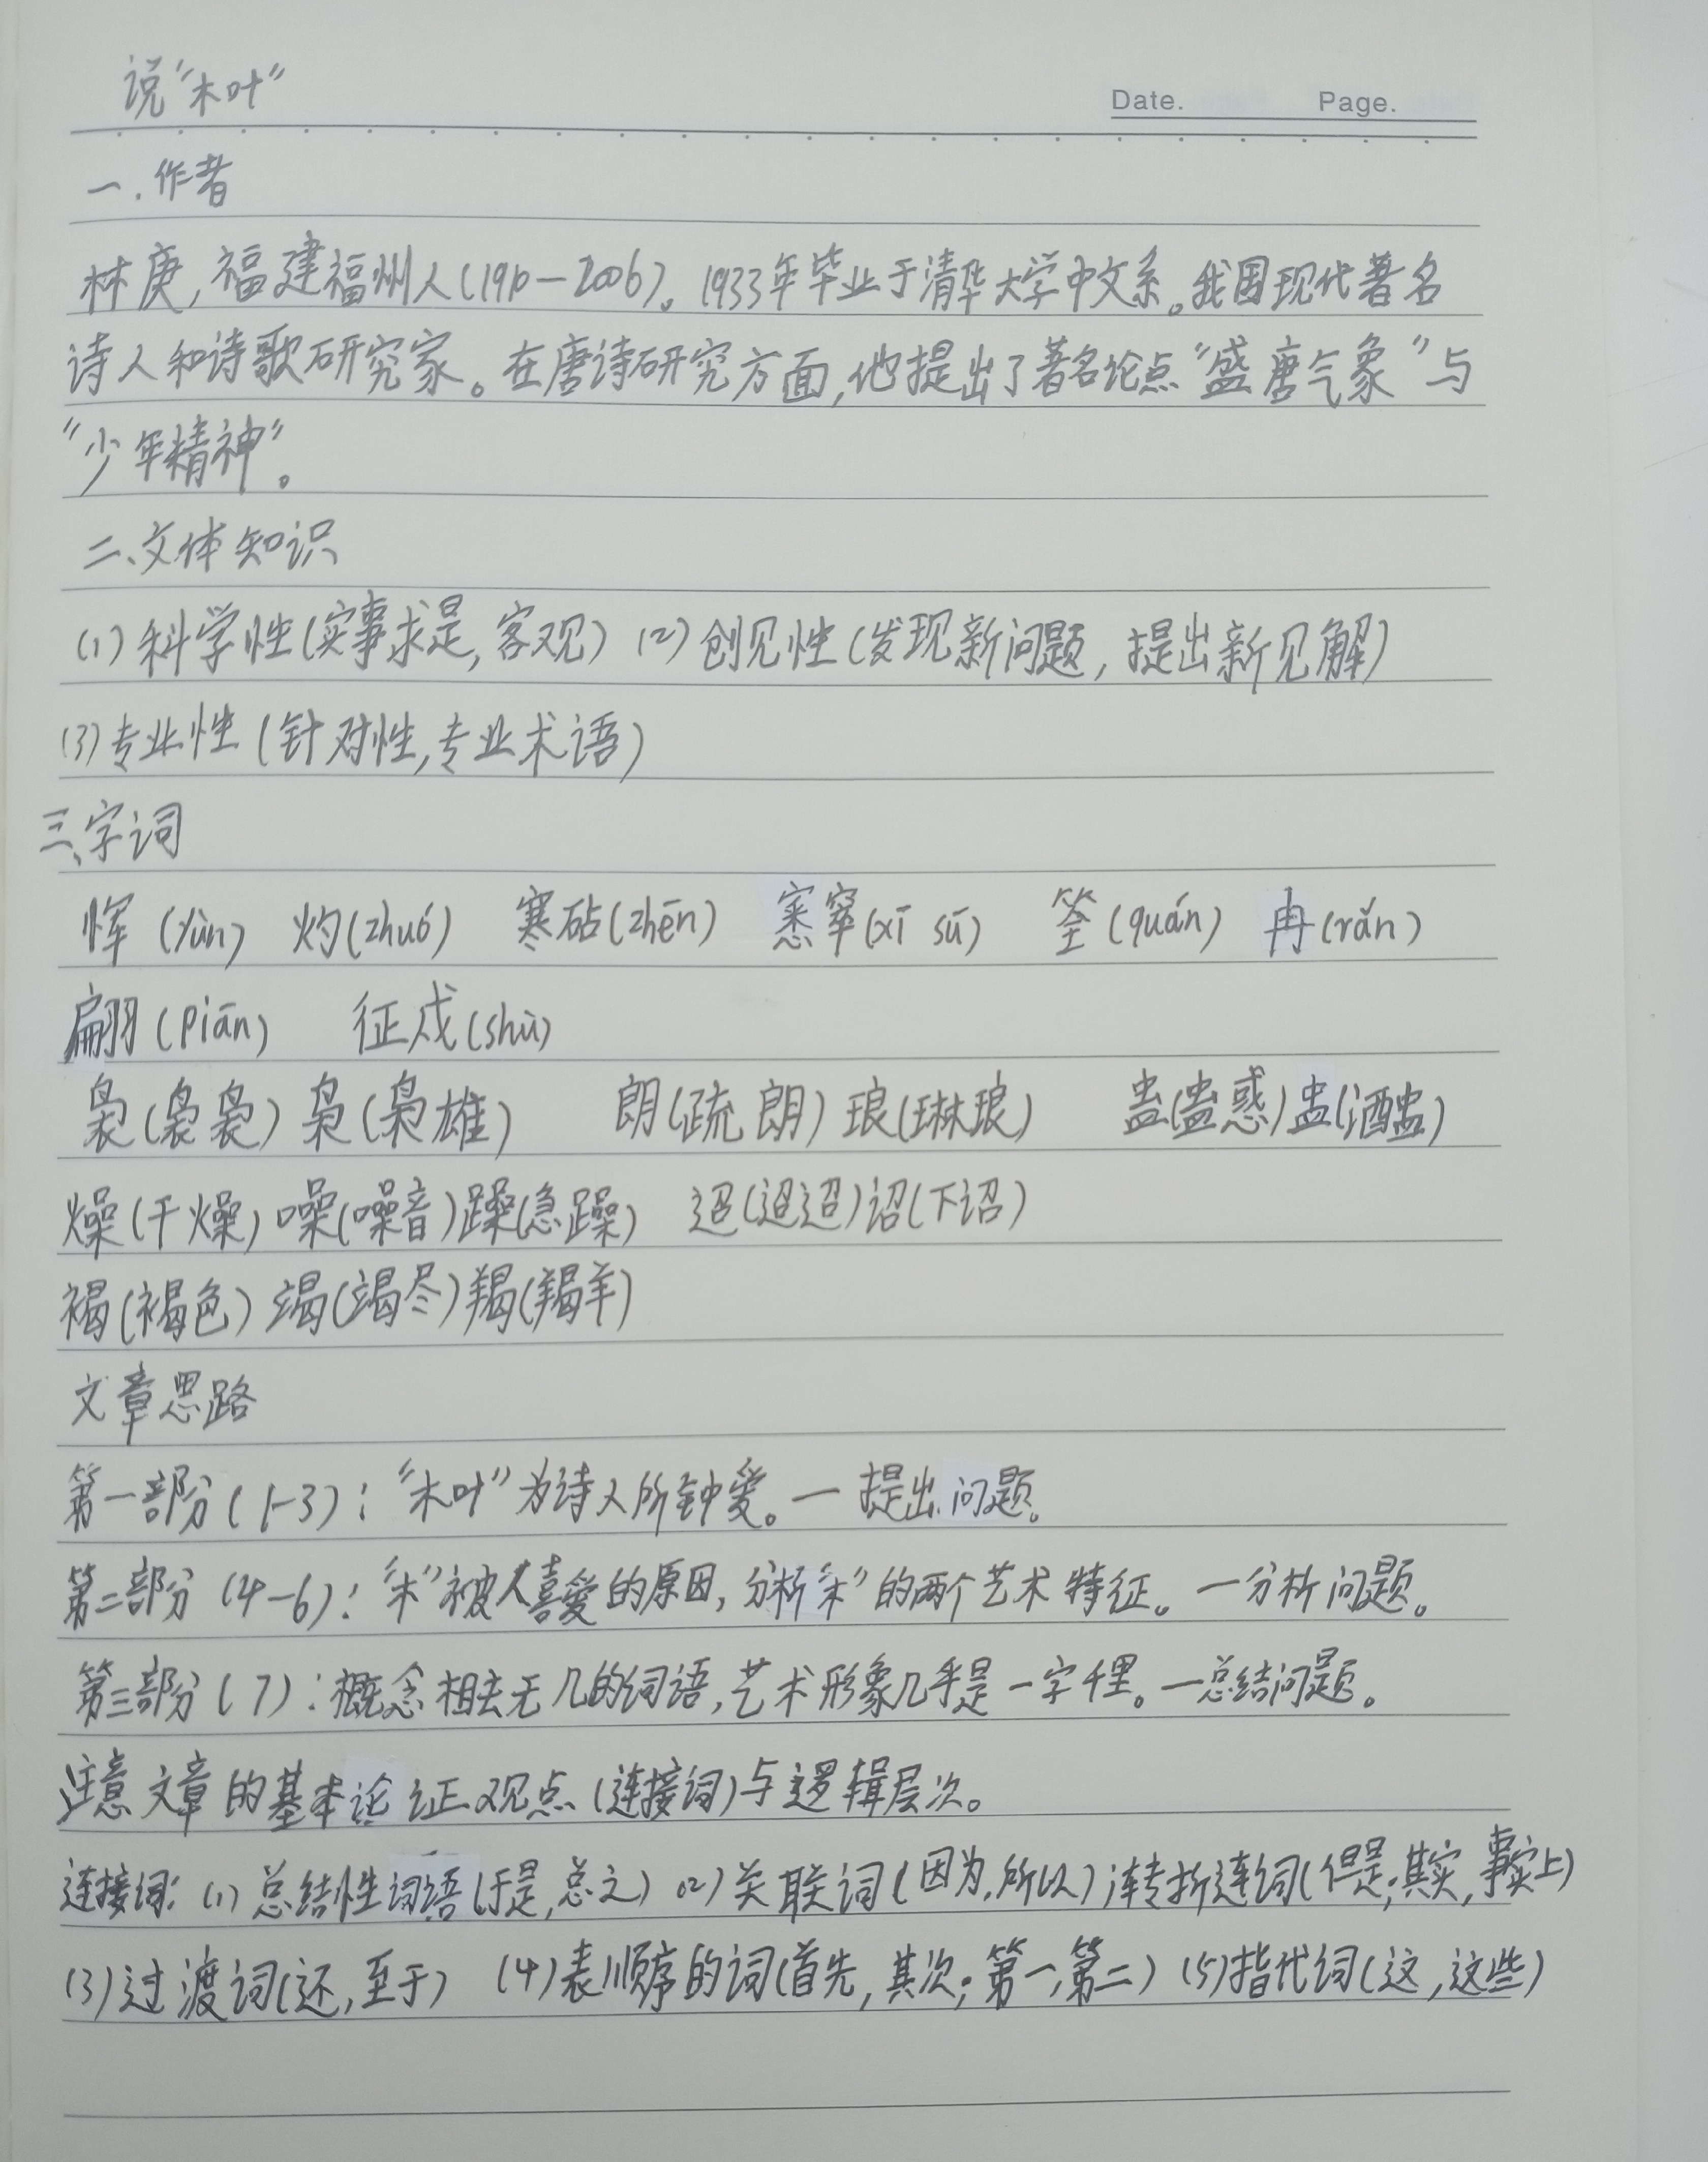 说“木叶”
Date. Page.
一.作者
林庚,福建福州人(1910—2006)。1933年毕业于清华大学中文系。我国现代著名
诗人和诗歌研究家。在唐诗研究方面,他提出了著名论点“盛唐气象”与
“少年精神”。
二、文体知识
(1)科学性(实事求是,客观) (2)创见性(发现新问题,提出新见解)
(3)专业性(针对性,专业术语)
三、字词
恽(yùn) 灼(zhuó) 寒砧(zhēn) 窸窣(xī sū) 筌(quán) 冉(rǎn)
翩(piān) 征戍(shù)
袅(袅袅) 枭(枭雄) 朗(疏朗) 琅(琳琅) 蛊(蛊惑) 盅(酒盅)
燥(干燥) 噪(噪音) 躁(急躁) 迢(迢迢) 诏(下诏)
褐(褐色) 竭(竭尽) 羯(羯羊)
文章思路
第一部分(1-3):“木叶”为诗人所钟爱。—提出问题。
第二部分(4-6):“木”被人喜爱的原因,分析“木”的两个艺术特征。—分析问题。
第三部分(7):概念相去无几的词语,艺术形象几乎是一字千里。—总结问题。
注意文章的基本论证观点(连接词)与逻辑层次。
连接词:(1)总结性词语(于是,总之) (2)关联词(因为,所以);转折连词(但是;其实,事实上)
(3)过渡词(还,至于) (4)表顺序的词(首先,其次;第一,第二) (5)指代词(这,这些)